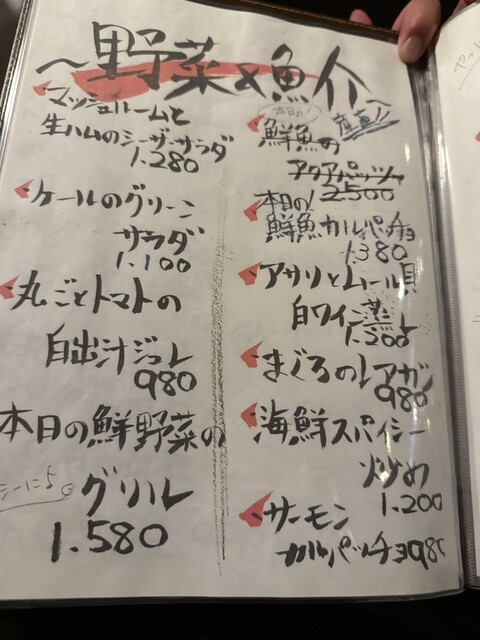 〜野菜&魚介〜
マッシュルームと
生ハムのシーザーサラダ
1.280
ケールのグリーン
サラダ
1.100
丸ごとトマトの
白出汁ジュレ
980
本日の鮮野菜の
グリル
1.580
本日の!
鮮魚の
産直!!
アクアパッツァ
2500
本日の!
鮮魚カルパッチョ
1.380
アサリとムール貝
白ワイン蒸し
1.200
まぐろのレアカツ
980
海鮮スパイシー
炒め
1.200
サーモン
カルパッチョ980